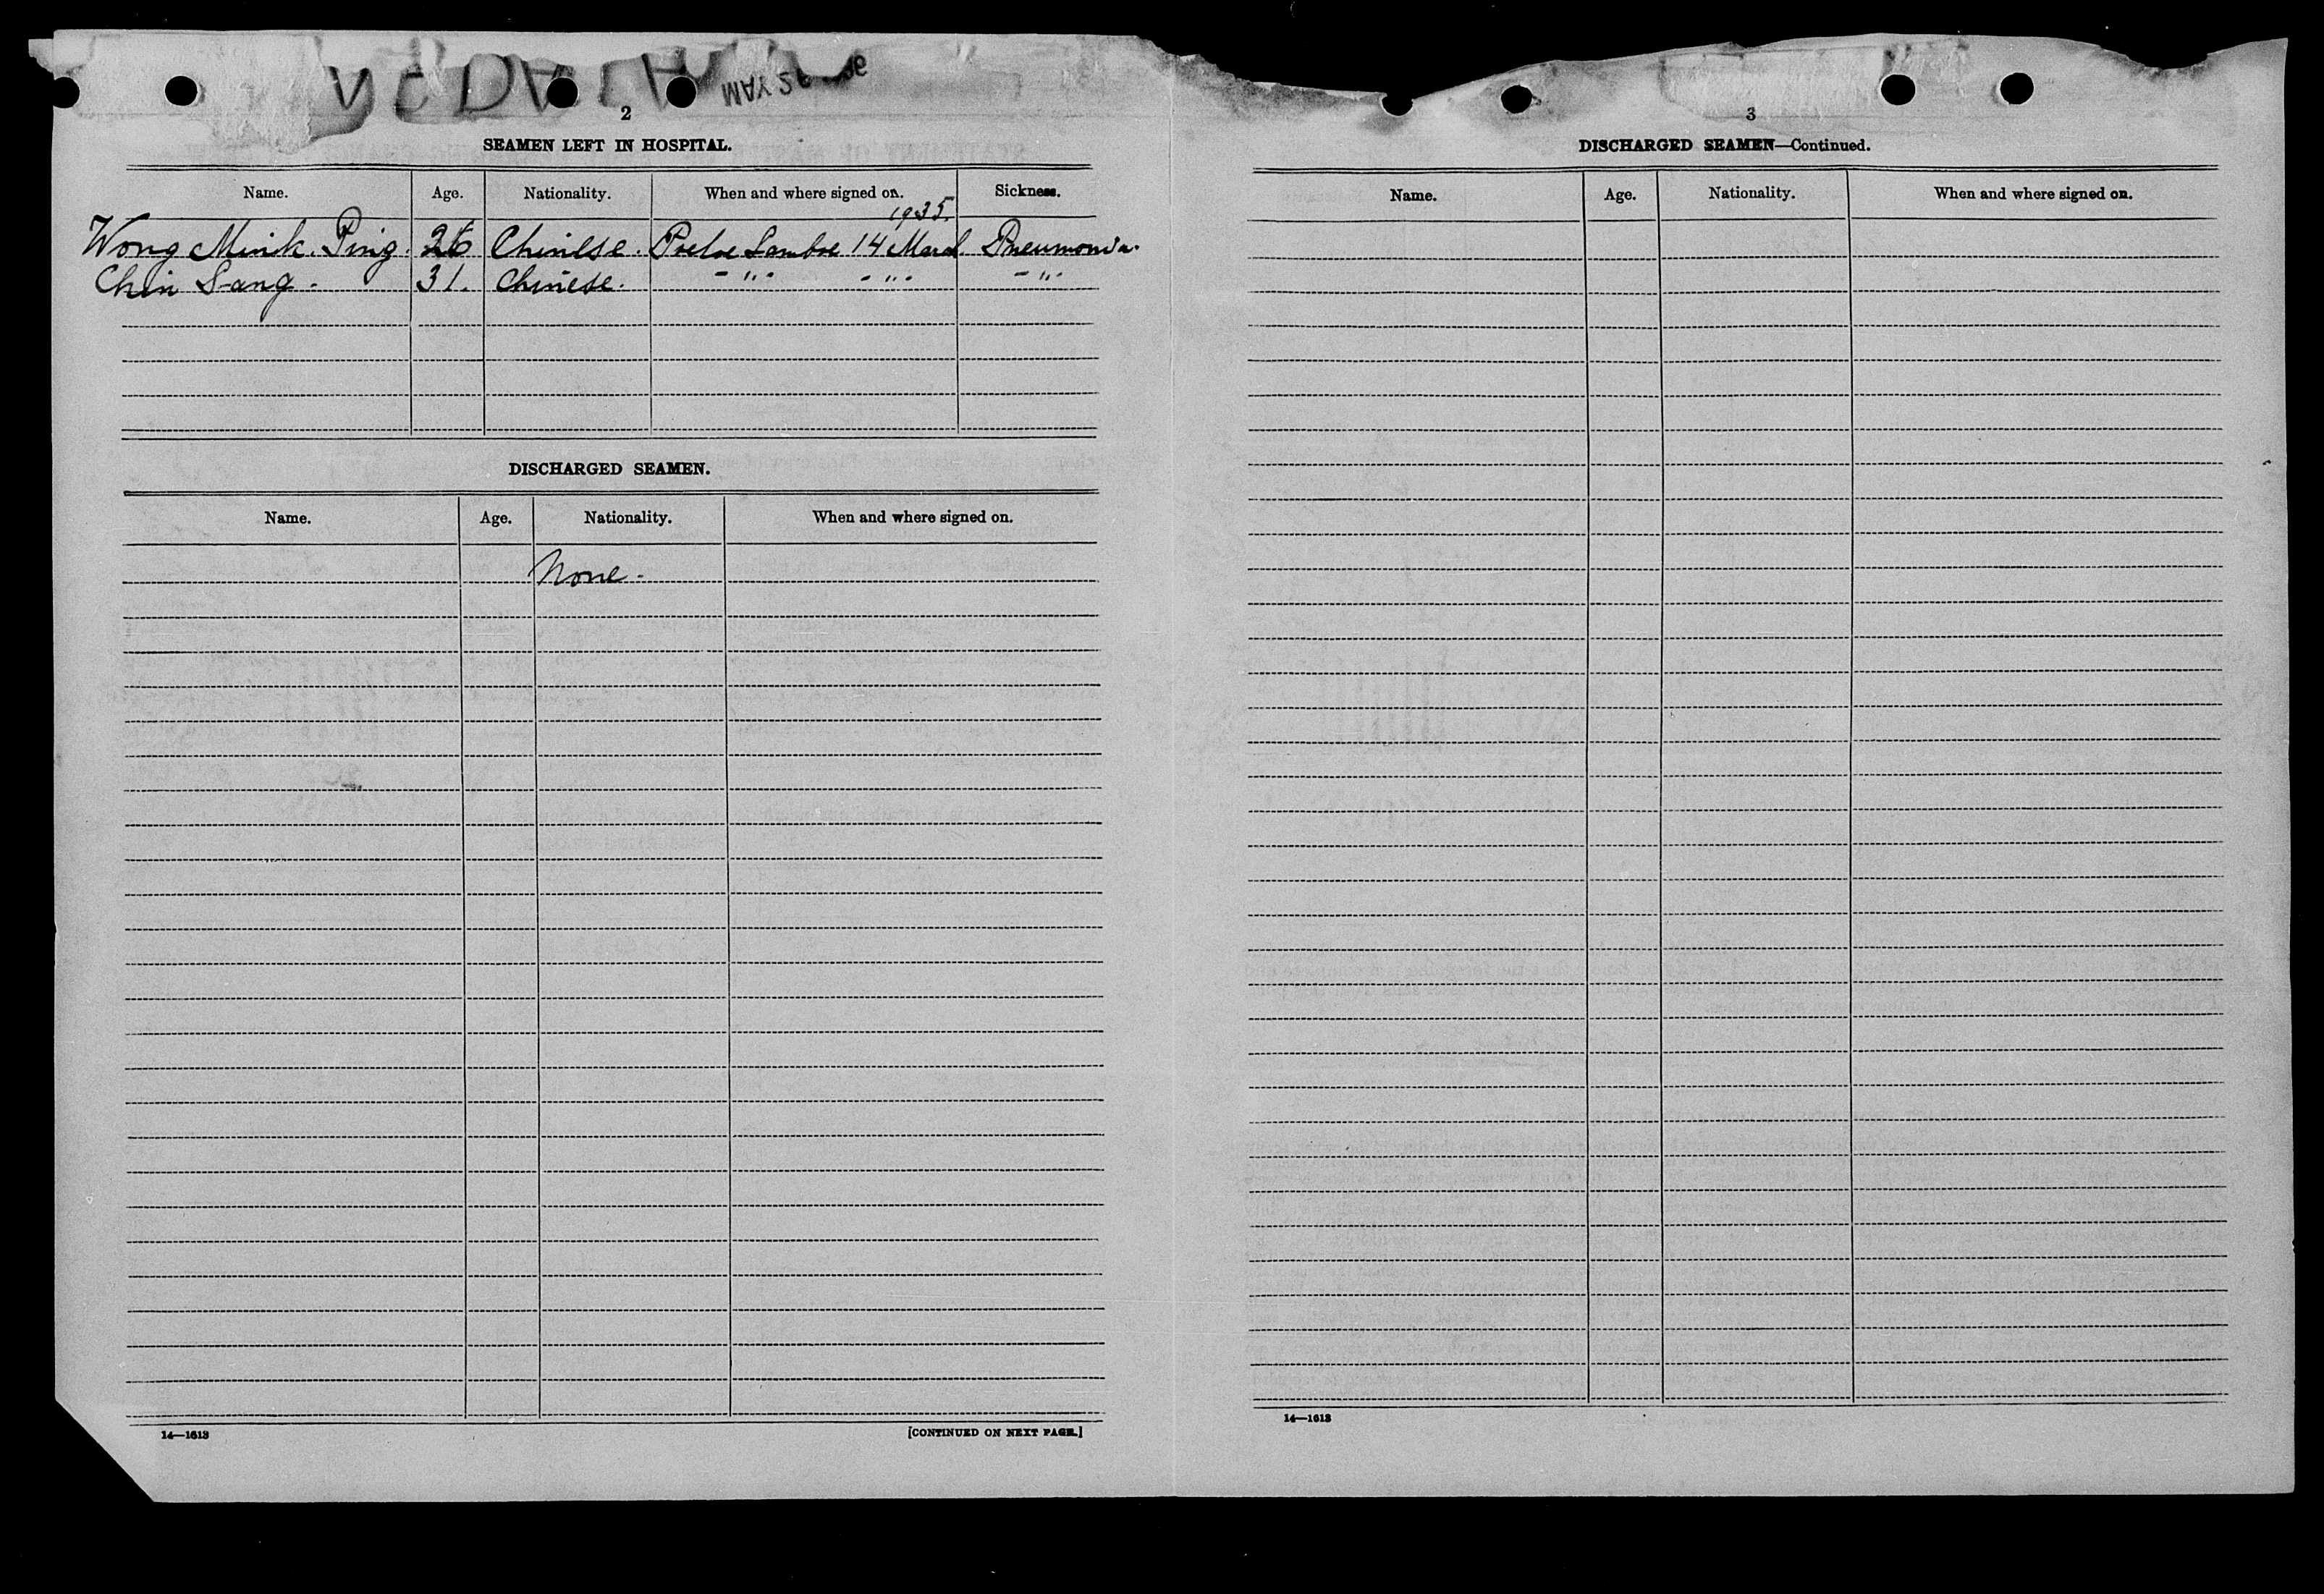 MAY
2
SEAMEN LEFT IN HOSPITAL.
Name. Age. Nationality. When and where signed on. Sickness.
1935.
Wong Mink. Ping. 26 Chinese. Poeloe Samboe 14 March. Pneumonia.
Chin Sang. 31. Chinese. -"- -"- -"-
DISCHARGED SEAMEN.
Name. Age. Nationality. When and where signed on.
None.
14—1613 [CONTINUED ON NEXT PAGE.]
3
DISCHARGED SEAMEN—Continued.
Name. Age. Nationality. When and where signed on.
14—1613